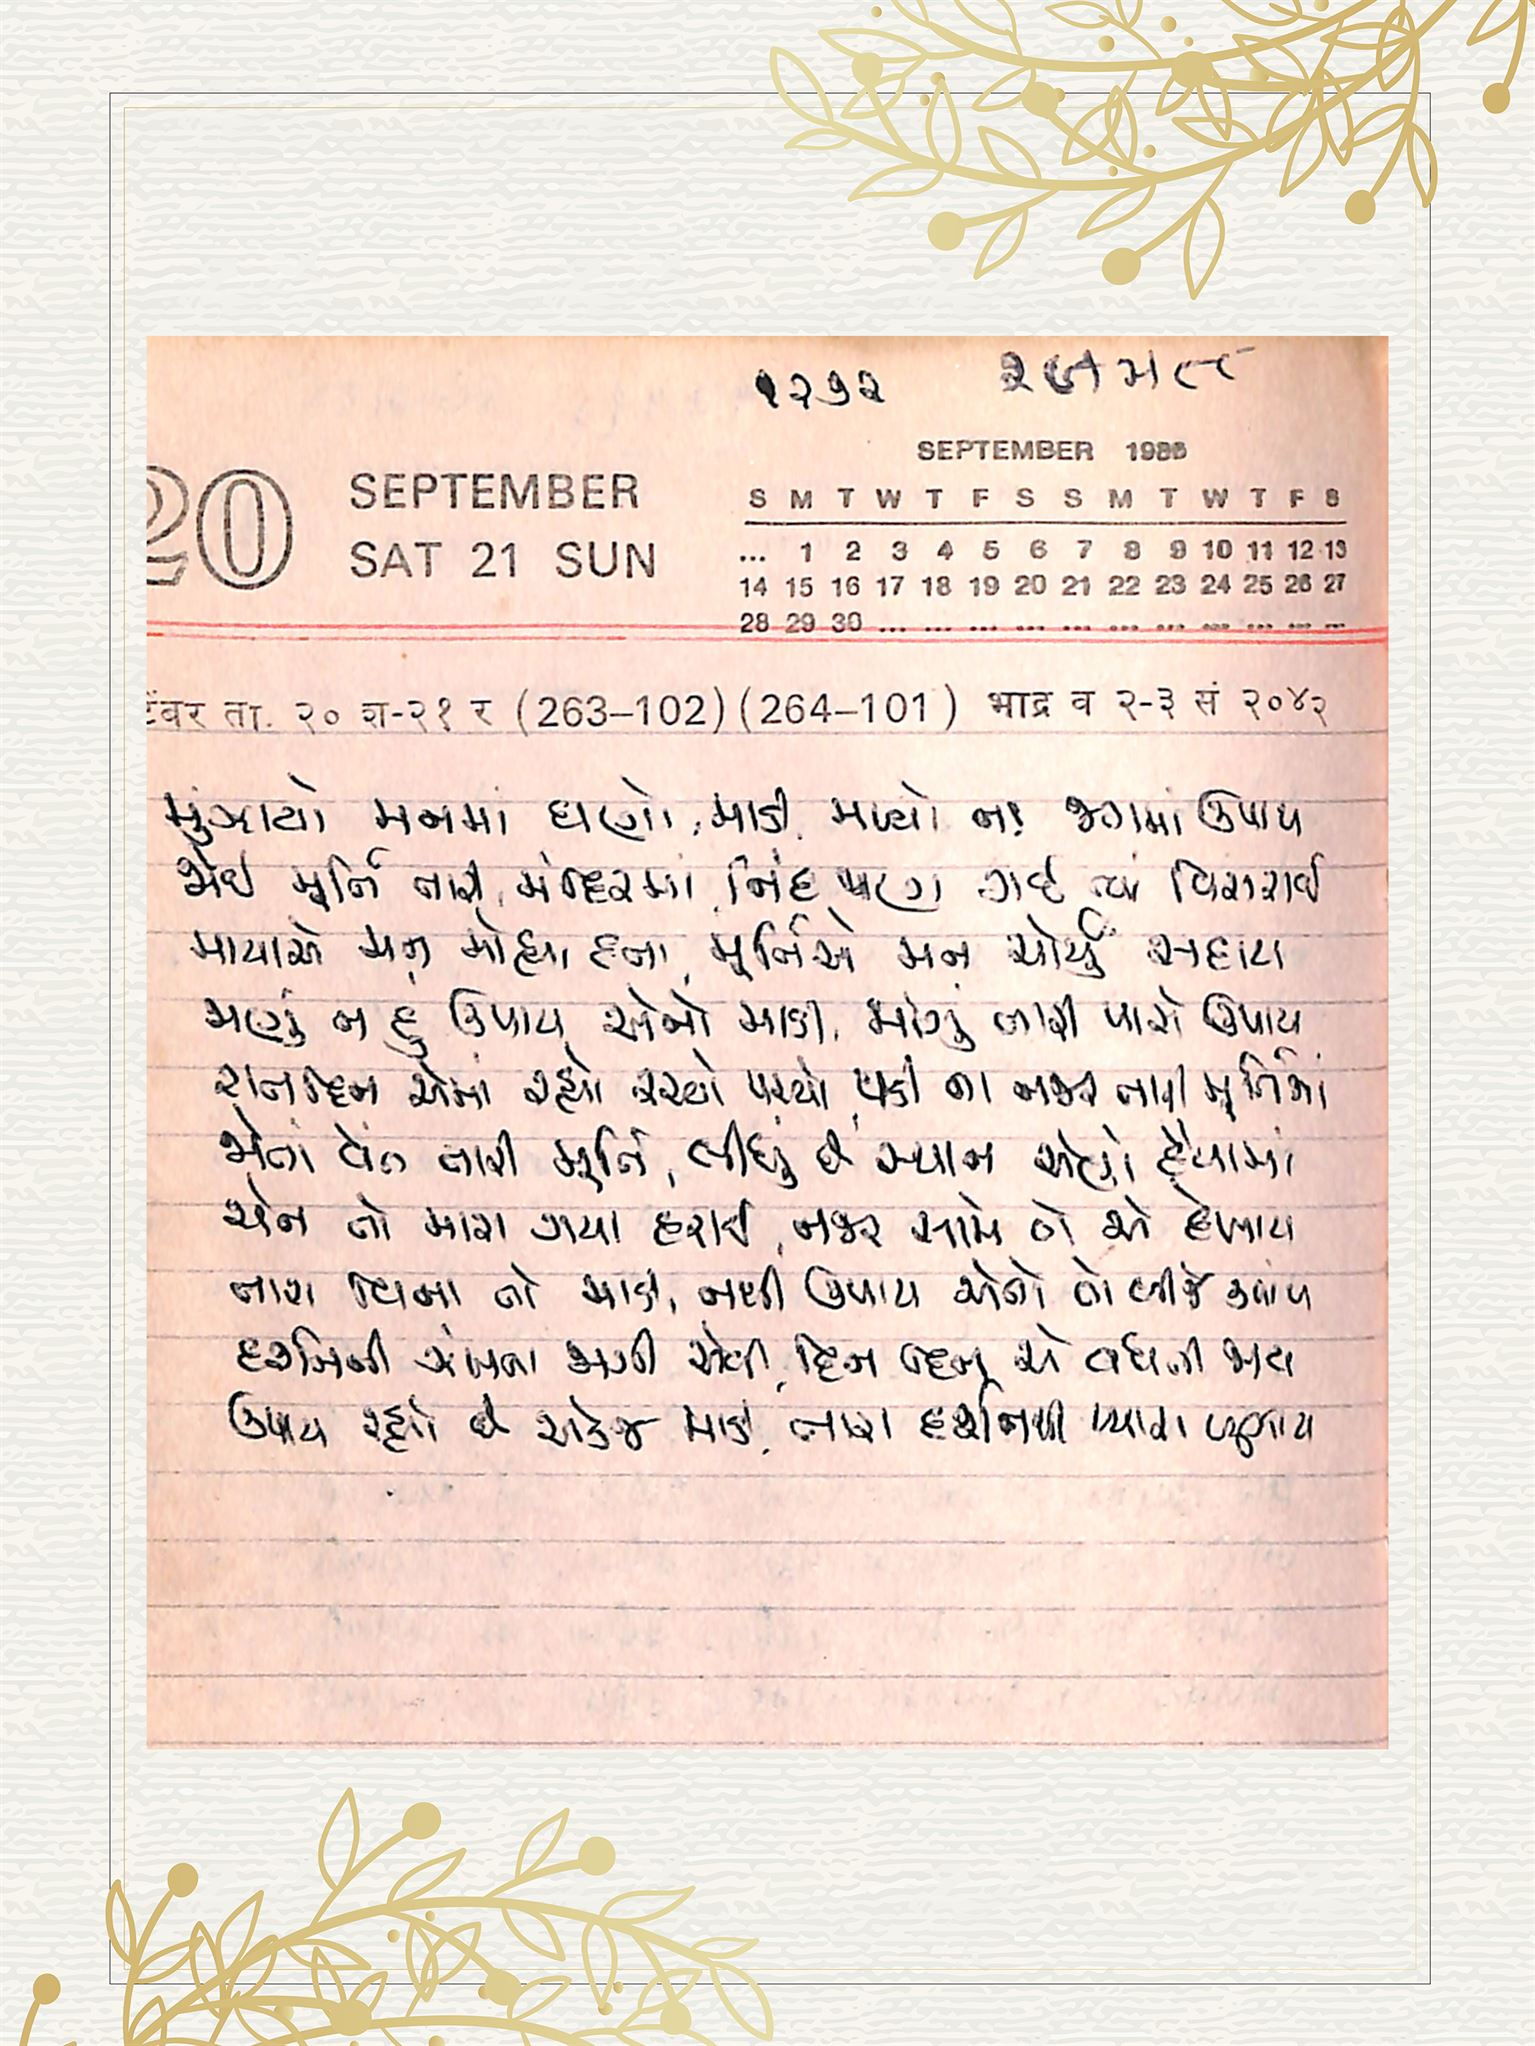 ૧૨૭૨
SEPTEMBER 1986
20 SEPTEMBER
SAT 21 SUN
S M T W T F S S M T W T F S
... 1 2 3 4 5 6 7 8 9 10 11 12 13
14 15 16 17 18 19 20 21 22 23 24 25 26 27
28 29 30 ... ... ... ... ... ... ... ... ... ... ...
टेंबर ता. २० श-२१ र (263–102) (264–101) भाद्र व २-३ सं २०४२
મુંઝાયો મનમાં ઘણો, માડી, મળ્યો ન જગમાં ઉપાય
જોઈ મૂર્તિ તારી, મંદિરમાં, નિંદ પણ ગઈ ત્યાં વિસરાઈ
માયાએ મન મોહ્યા હતા, મૂર્તિએ મન ચોર્યું સદાય
મણું ન હું ઉપાય એનો માડી, માંગુ તારી પાસે ઉપાય
રાતદિન એમાં રહ્યો રચ્યો પચ્યો, પડી ના નજર તારી મૂર્તિમાં
જોતાં વેંત તારી મૂર્તિ, લીધું છે સ્થાન એણે હૈયામાં
ચેન તો મારા ગયા હરાઈ, નજર સામે તો એ દેખાય
તારા વિના તો માડી, નથી ઉપાય એનો તો બીજે ક્યાંય
દર્શનની ઝંખના જાગી એવી, દિન દિન એ વધતી જાય
ઉપાય રહ્યો છે એકજ માડી, તારા દર્શનથી પ્યાસ બુઝાય